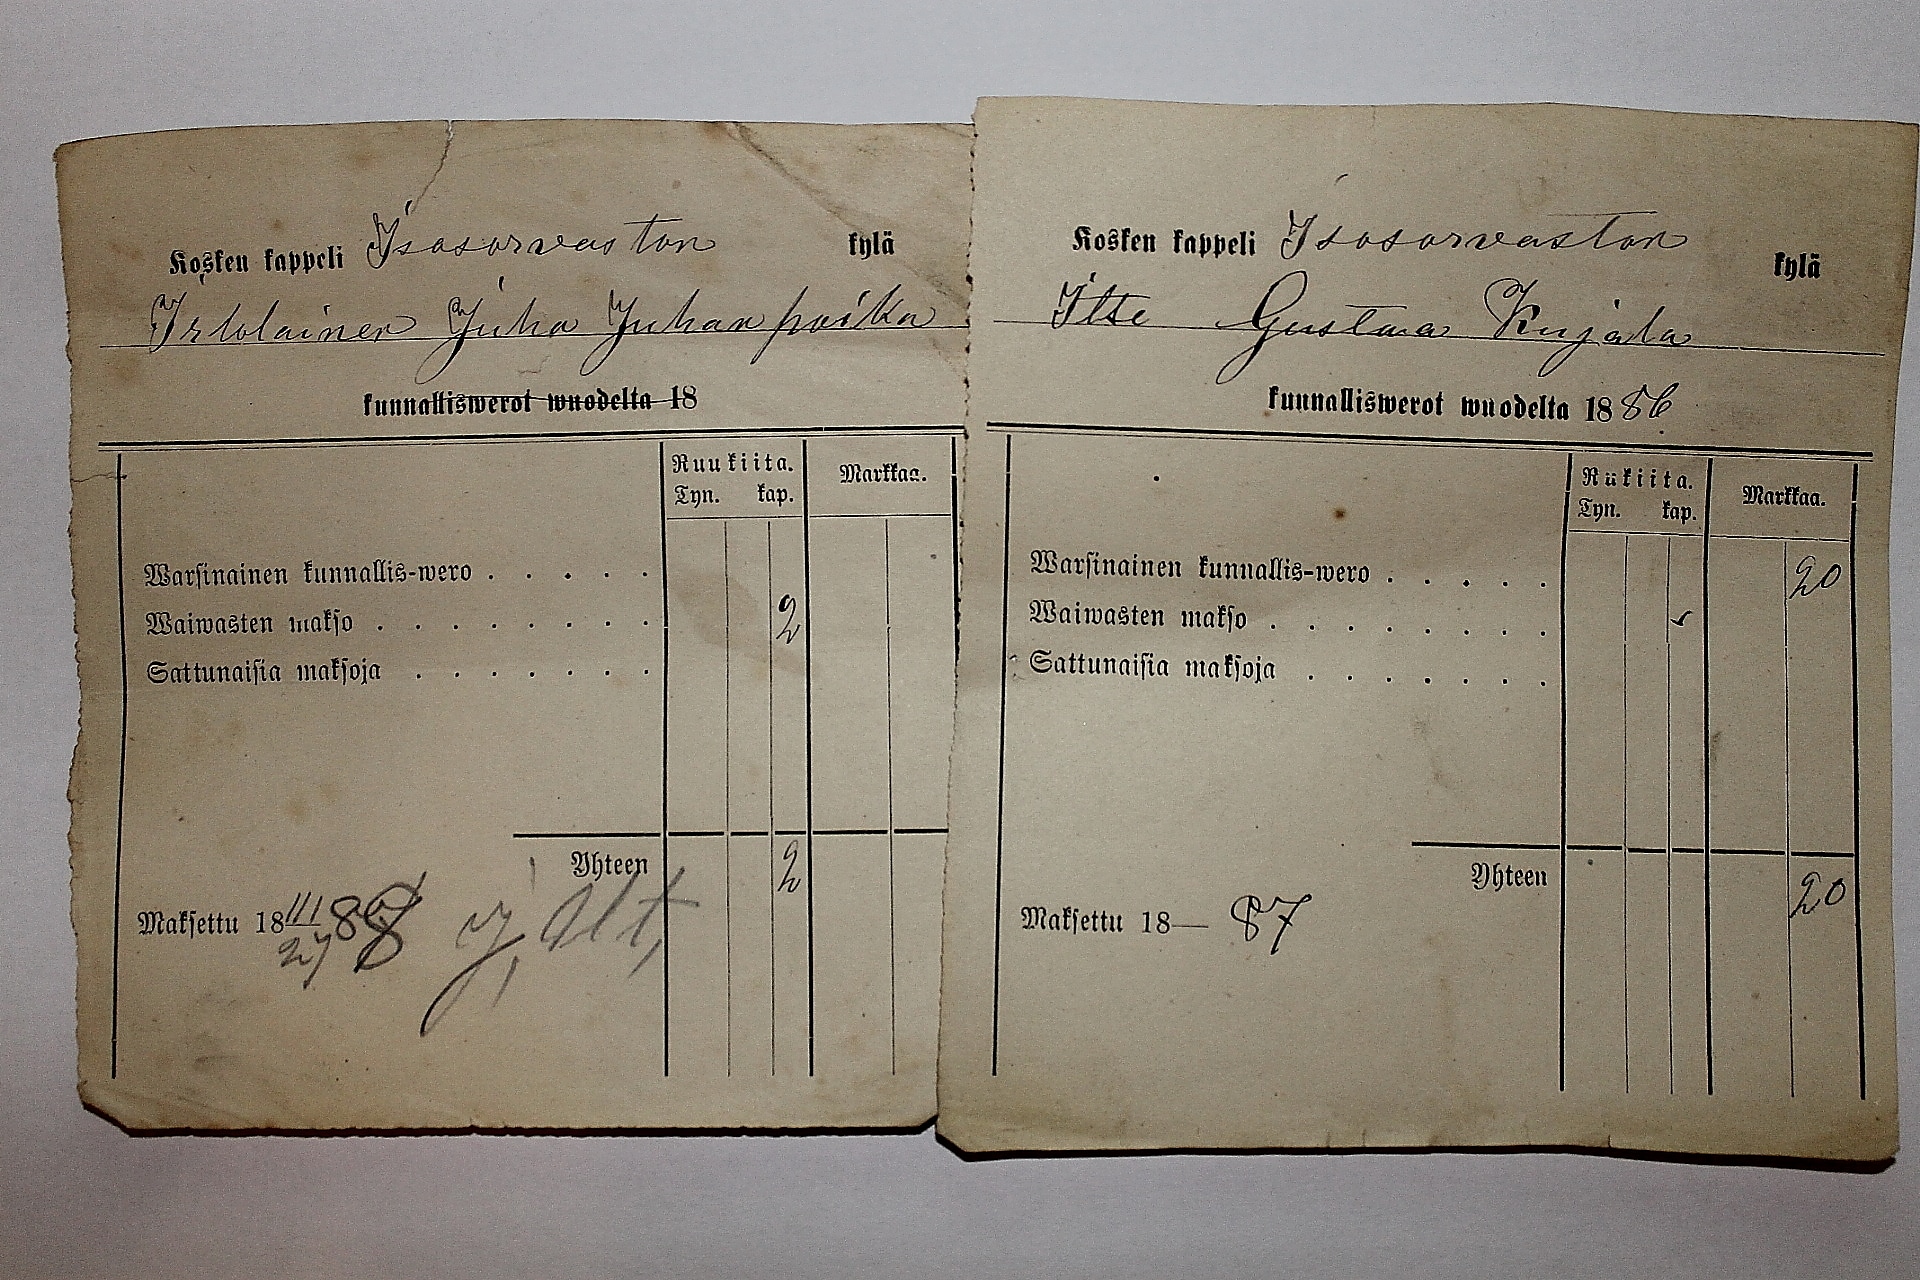 Kosken kappeli Isosorvaston kylä
Irtolainen Juha Juhanpoika
kunnalliswerot wuodelta 18
Ruukiita. Markkaa.
Tyn. kap.
Warsinainen kunnallis-wero . . . . .
Waiwasten makso . . . . . . . . 2
Sattunaisia maksoja . . . . . . .
Yhteen 2
Maksettu 18 III/27 88
Kosken kappeli Isosorvaston kylä
Itse Gustava Kujala
kunnalliswerot wuodelta 1886.
Rükiita. Markkaa.
Tyn. kap.
Warsinainen kunnallis-wero . . . . . 20
Waiwasten makso . . . . . . . .
Sattunaisia maksoja . . . . . . .
Yhteen 20
Maksettu 18— 87